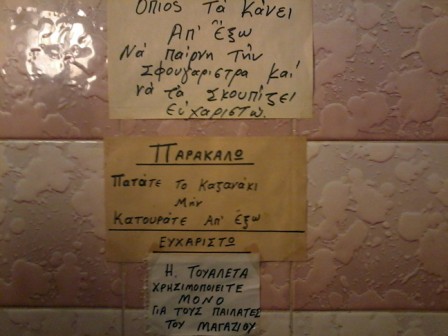 Οπιος Τα Κάνει
Απ' Έξω
Νά παίρνη Τήν
Σφουγαρίστρα Καί
νά τα Σκουπίζει
Ευχαριστω.
Παρακαλω
Πατάτε Το Καζανάκι
Μήν
Κατουράτε Απ' έξω
Ευχαριστω
Η. ΤΟΥΑΛΕΤΑ
ΧΡΗΣΙΜΟΠΟΙΕΙΤΕ
ΜΟΝΟ
ΓΙΑ ΤΟΥΣ ΠΕΙΛΑΤΕΣ
ΤΟΥ ΜΑΓΑΖΙΟΥ